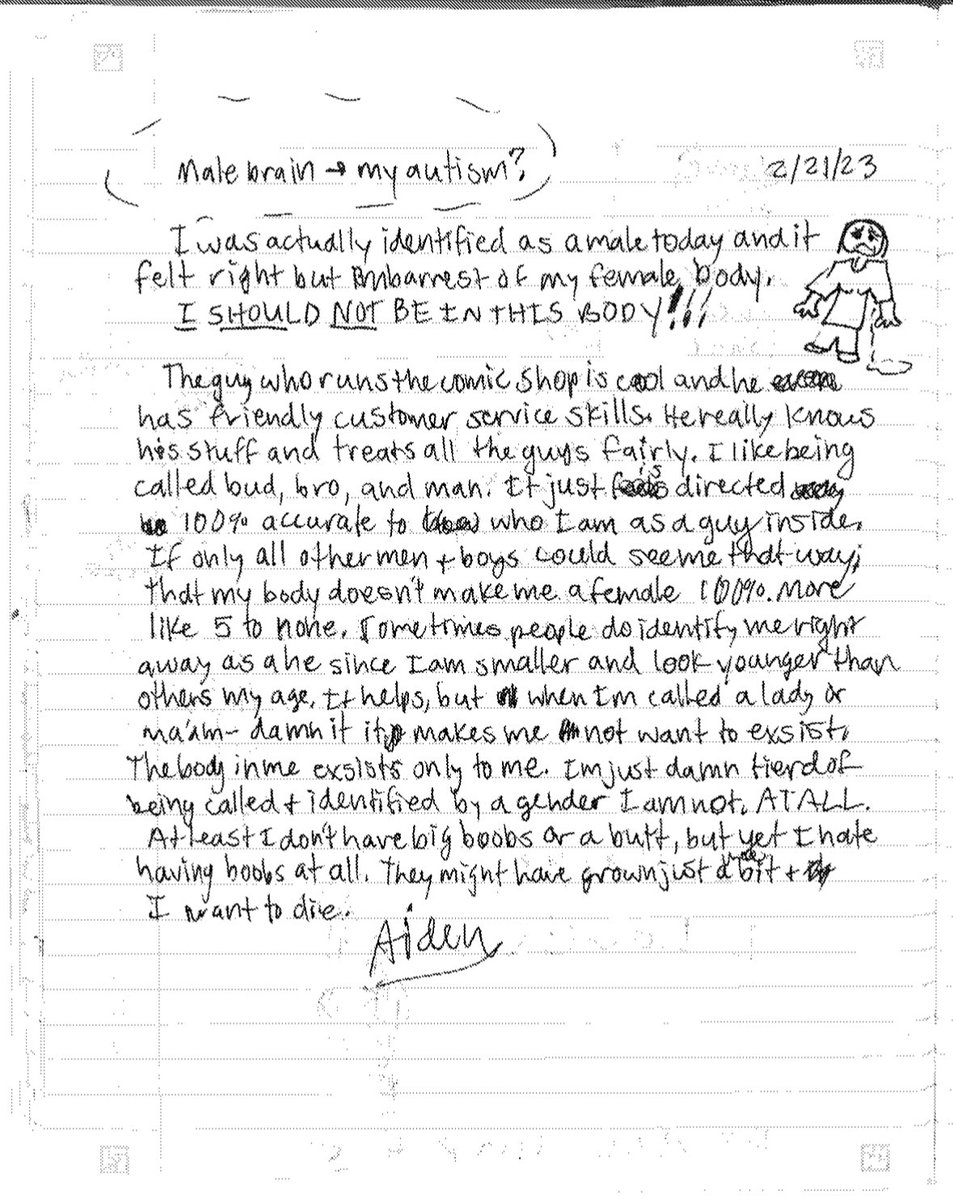 Male brain → my autism?
2/21/23
I was actually identified as a male today and it
felt right but Embarrest of my female body.
I SHOULD NOT BE IN THIS BODY!!!
The guy who runs the comic shop is cool and he
has friendly customer service skills. He really knows
his stuff and treats all the guys fairly. I like being
called bud, bro, and man. It just is directed
100% accurate to who I am as a guy inside.
If only all other men + boys could see me that way;
that my body doesn't make me a female 100%. More
like 5 to none. Sometimes people do identify me right
away as a he since I am smaller and look younger than
others my age. It helps, but when I'm called a lady or
ma'am- damn it it makes me not want to exsist.
The body in me exsists only to me. I'm just damn tierd of
being called + identified by a gender I am not. AT ALL.
At least I don't have big boobs or a butt, but yet I hate
having boobs at all. They might have grown just a bit +
I want to die.
Aiden